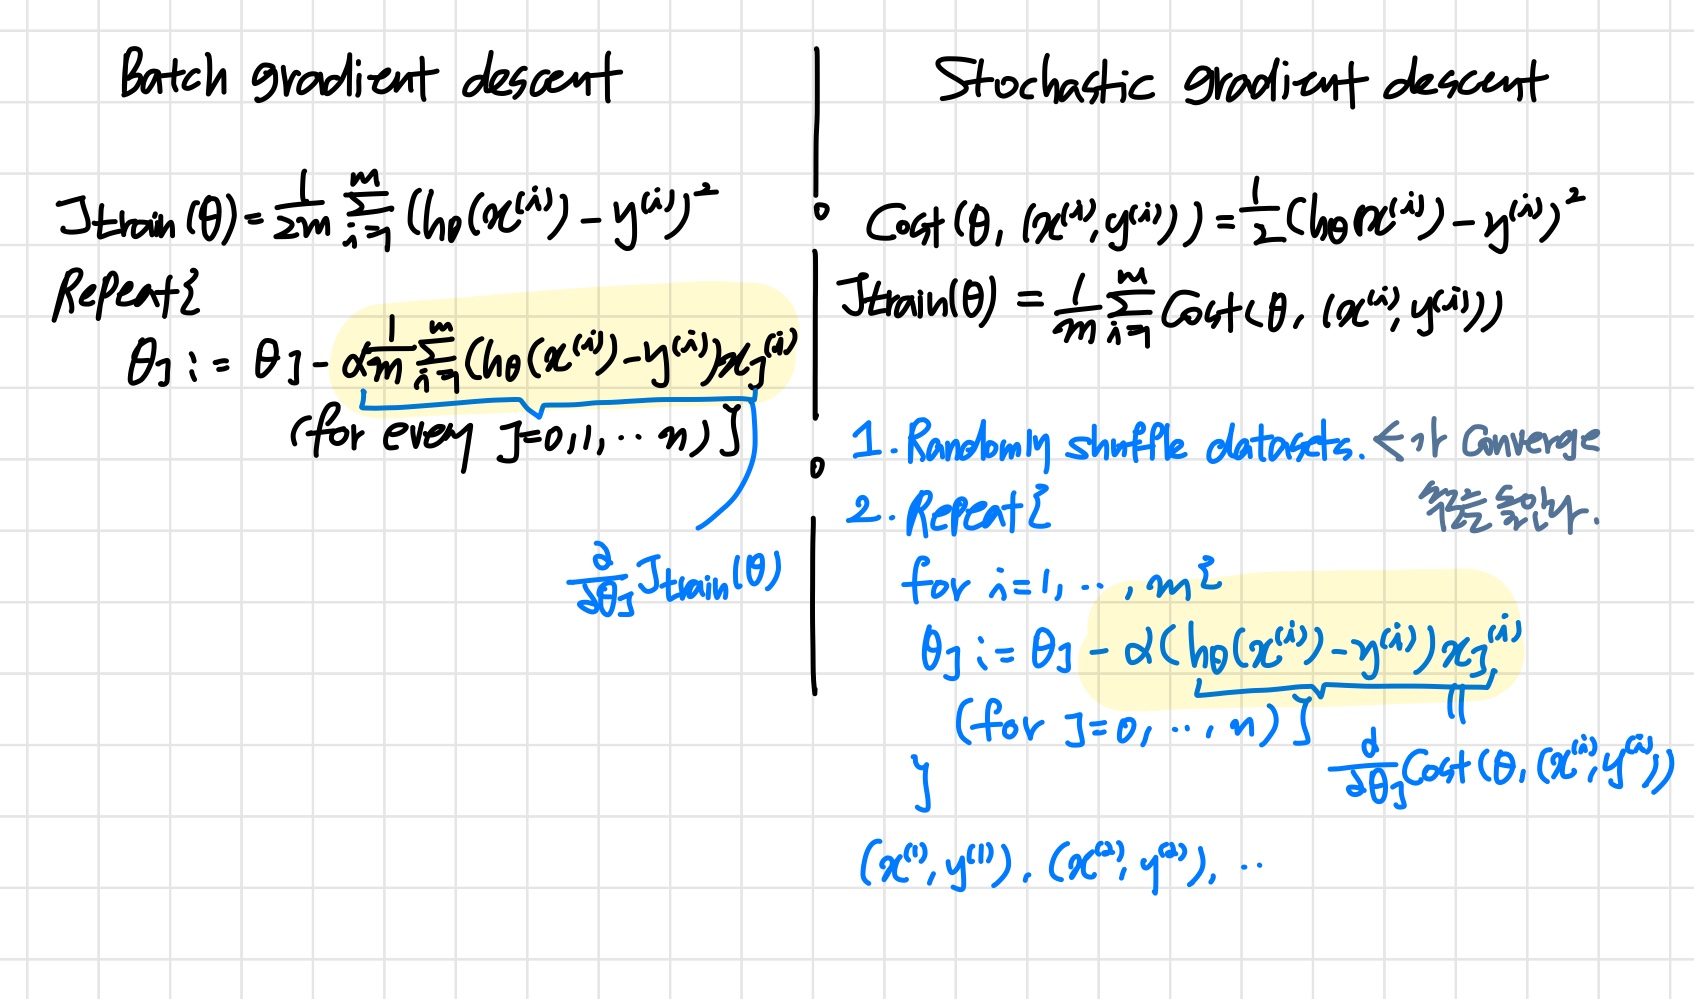 Batch gradient descent
Jtrain(θ) = 1/2m Σ_{i=1}^{m} (hθ(x^(i)) - y^(i))²
Repeat{
θJ := θJ - α 1/m Σ_{i=1}^{m} (hθ(x^(i)) - y^(i)) xJ^(i)
(for every J=0,1,..n) }
∂/∂θJ Jtrain(θ)
Stochastic gradient descent
Cost(θ, (x^(i), y^(i))) = 1/2 (hθ(x^(i)) - y^(i))²
Jtrain(θ) = 1/m Σ_{i=1}^{m} Cost(θ, (x^(i), y^(i)))
1. Randomly shuffle datasets. ← 가 Converge
2. Repeat{
for i=1, .., m{
θJ := θJ - α(hθ(x^(i)) - y^(i)) xJ^(i)
(for J=0, .., n) }
}
∂/∂θJ Cost(θ, (x^(i), y^(i)))
(x^(1), y^(1)), (x^(2), y^(2)), ..